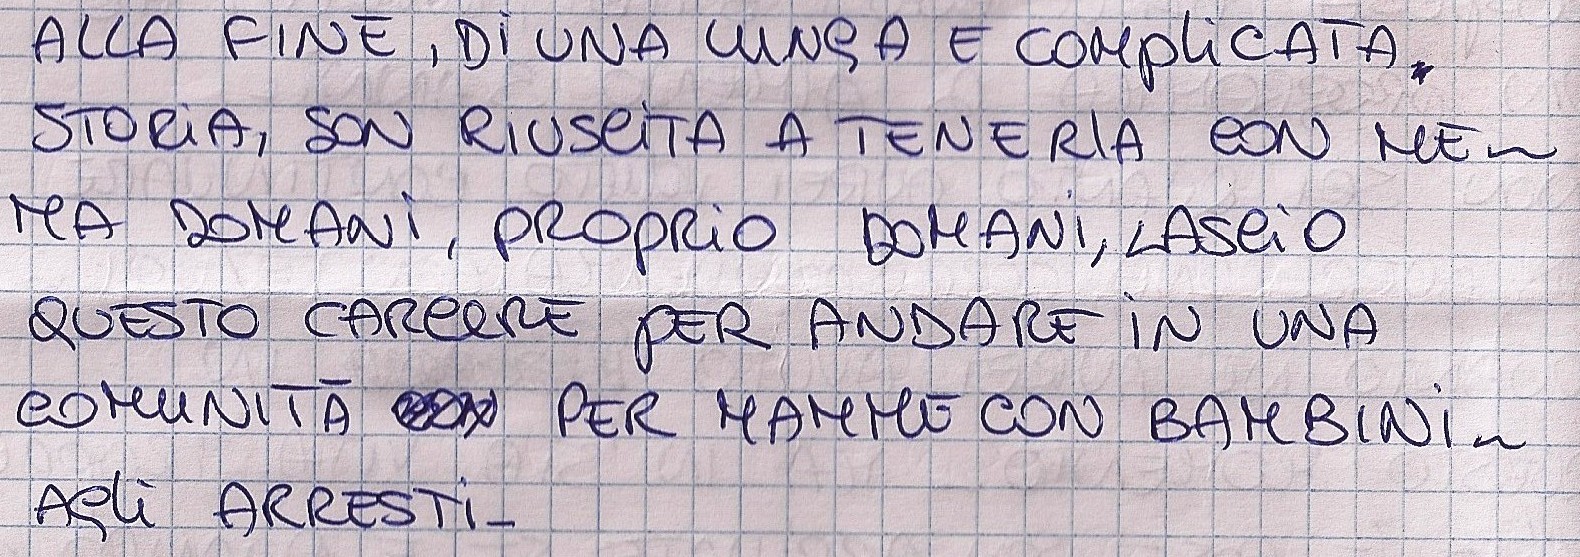 ALLA FINE, Di UNA LUNGA E COMPliCATA.
STORiA, SON RIUSCiTA A TENERlA CON ME-
MA DOMANi, PROPRiO DOMANi, LASCiO
QUESTO CARCERE PER ANDARE iN UNA
COMUNITÀ PER MAMME CON BAMBINi-
AGli ARRESTi-